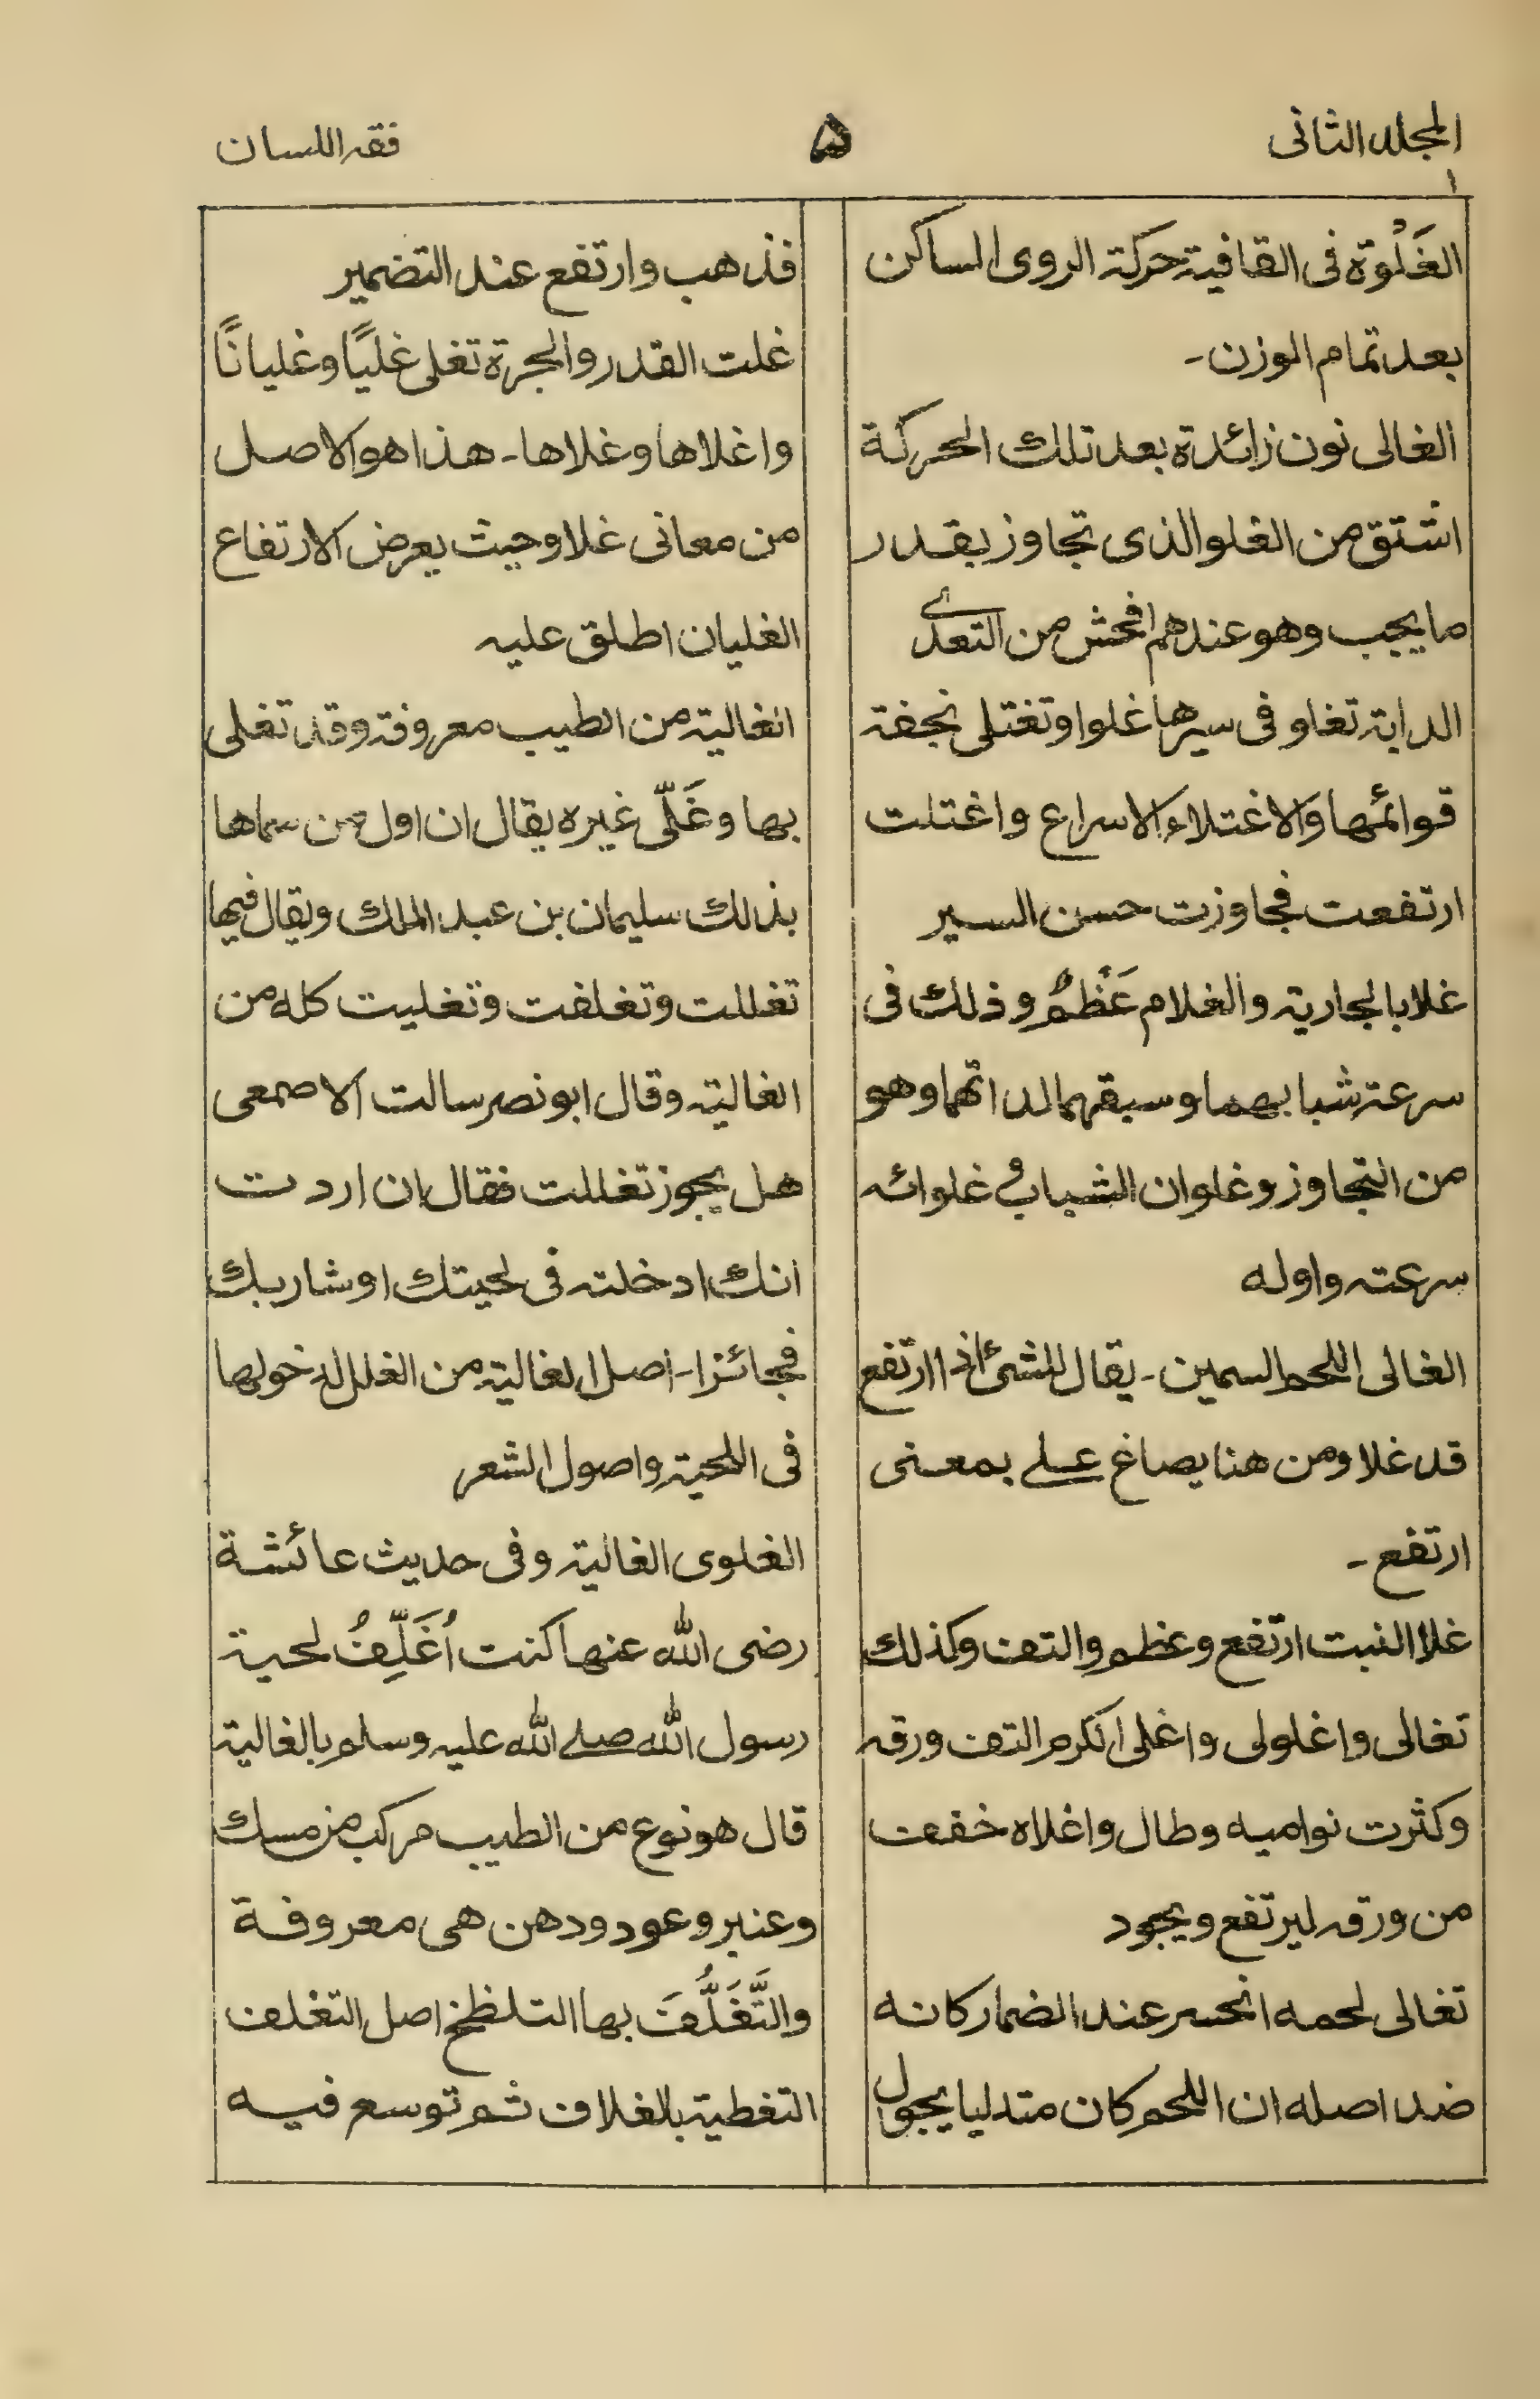 المجلد الثانى
۵
فقہ اللسان
الغَلْوة فى القافية حركة الروى الساكن
بعد تمام الوزن۔
الغالى نون زائدة بعد تلك الحركة
اشتق من الغلو الذى تجاوز بقدر
ما يجب وهو عندهم افحش من التعدى
الدابة تغلو فى سيرها غلوا وتغتلى بخفة
قوائمها والاغتلاء الاسراع واغتلت
ارتفعت فجاوزت حسن السير
غلا بالجارية والغلام عَظْمٌ وذلك فى
سرعة شبابهما وسبقهما لداتهما وهو
من التجاوز وغلوان الشباب وغلوائه
سرعته واوله
الغالى اللحم السمين۔ يقال للشئ اذا ارتفع
قد غلا ومن هنا يصاغ على بمعنى
ارتفع۔
غلا النبت ارتفع وعظم والتف وكذلك
تغالى واغلولى واغلى الكرم التف ورقه
وكثرت نواميه وطال واغلاه خفف
من ورقه ليرتفع ويجود
تغالى لحمه انحسر عند الضمار كانه
ضد اصله ان اللحم كان متدليا يجول
فذهب وارتفع عند التضمير
غلت القدر والجرة تغلى غليًا وغليانًا
واغلاها وغلاها۔ هذا هو الاصل
من معانى غلا وحيث يعرض الارتفاع
الغليان اطلق عليه
الغالية من الطيب معروفة وقد تغلى
بها وغَلّى غيره يقال ان اول من سماها
بذلك سليمان بن عبد الملك ويقال فيها
تغللت وتغلفت وتغليت كله من
الغالية وقال ابو نصر سالت الاصمعى
هل يجوز تغللت فقال ان اردت
انك ادخلته فى لحيتك او شاربك
فجائز ا۔ اصل الغالية من الغلل لدخولها
فى اللحية واصول الشعر
الغلوى الغالية وفى حديث عائشة
رضى الله عنها كنت اُغَلِّفُ لحية
رسول الله صلے الله عليه وسلم بالغالية
قال هو نوع من الطيب مركب من مسك
وعنبر وعود ودهن هى معروفة
والتَّغَلُّفَ بها التلطخ اصل التغلف
التغطية بالغلاف ثم توسع فيه